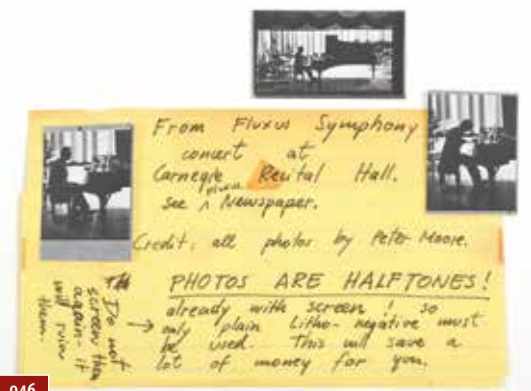 From Fluxus Symphony
concert at
Carnegie Recital Hall.
see ^ fluxus Newspaper.
Credit: all photos by Peter Moore.
PHOTOS ARE HALFTONES!
already with screen! so
only plain Litho-negative must
be used. This will save a
lot of money for you.
Do not
screen them
again - it
will ruin
them.
946